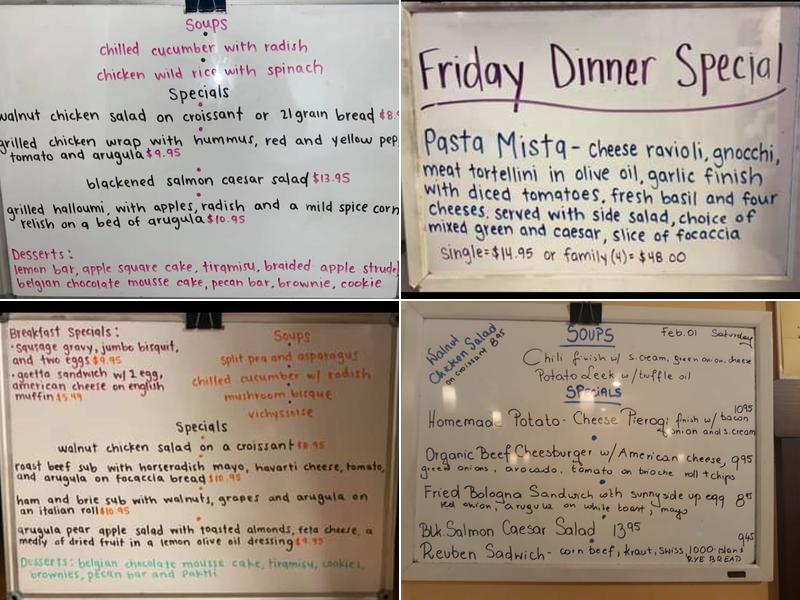 Soups
chilled cucumber with radish
chicken wild rice with spinach
Specials
walnut chicken salad on croissant or 21 grain bread $8.
grilled chicken wrap with hummus, red and yellow pep
tomato and arugula $9.95
blackened salmon caesar salad $13.95
grilled halloumi, with apples, radish and a mild spice corn
relish on a bed of arugula $10.95
Desserts:
lemon bar, apple square cake, tiramisu, braided apple strudel
belgian chocolate mousse cake, pecan bar, brownie, cookie
Friday Dinner Special
Pasta Mista - cheese ravioli, gnocchi,
meat tortellini in olive oil, garlic finish
with diced tomatoes, fresh basil and four
cheeses. served with side salad, choice of
mixed green and caesar, slice of focaccia
single = $14.95 or family (4) = $48.00
Breakfast Specials:
• sausage gravy, jumbo bisquit,
and two eggs $9.95
• goetta sandwich w/ 1 egg,
american cheese on english
muffin $5.49
Soups
split pea and asparagus
chilled cucumber w/ radish
mushroom bisque
vichyssoise
Specials
walnut chicken salad on a croissant $8.95
roast beef sub with horseradish mayo, havarti cheese, tomato,
and arugula on focaccia bread $10.95
ham and brie sub with walnuts, grapes and arugula on
an italian roll $10.95
arugula pear apple salad with toasted almonds, feta cheese, a
medly of dried fruit in a lemon olive oil dressing $9.95
Desserts: belgian chocolate mousse cake, tiramisu, cookies,
brownies, pecan bar and
Walnut
Chicken Salad
on croissant 8.95
SOUPS
Feb. 01 Saturday
Chili finish w/ s.cream, green onion, cheese
Potato Leek w/ tuffle oil
SPECIALS
Homemade Potato - Cheese Pierogi finish w/ bacon 1095
onion and s.cream
Organic Beef Cheesburger w/ American cheese, 995
green onions, avocado, tomato on brioche roll + chips
Fried Bologna Sandwich with sunny side up egg 895
red onion, arugula on white toast, mayo
Blk. Salmon Caesar Salad 1395
Reuben Sadwich - corn beef, kraut, swiss, 1000 island 945
RYE BREAD